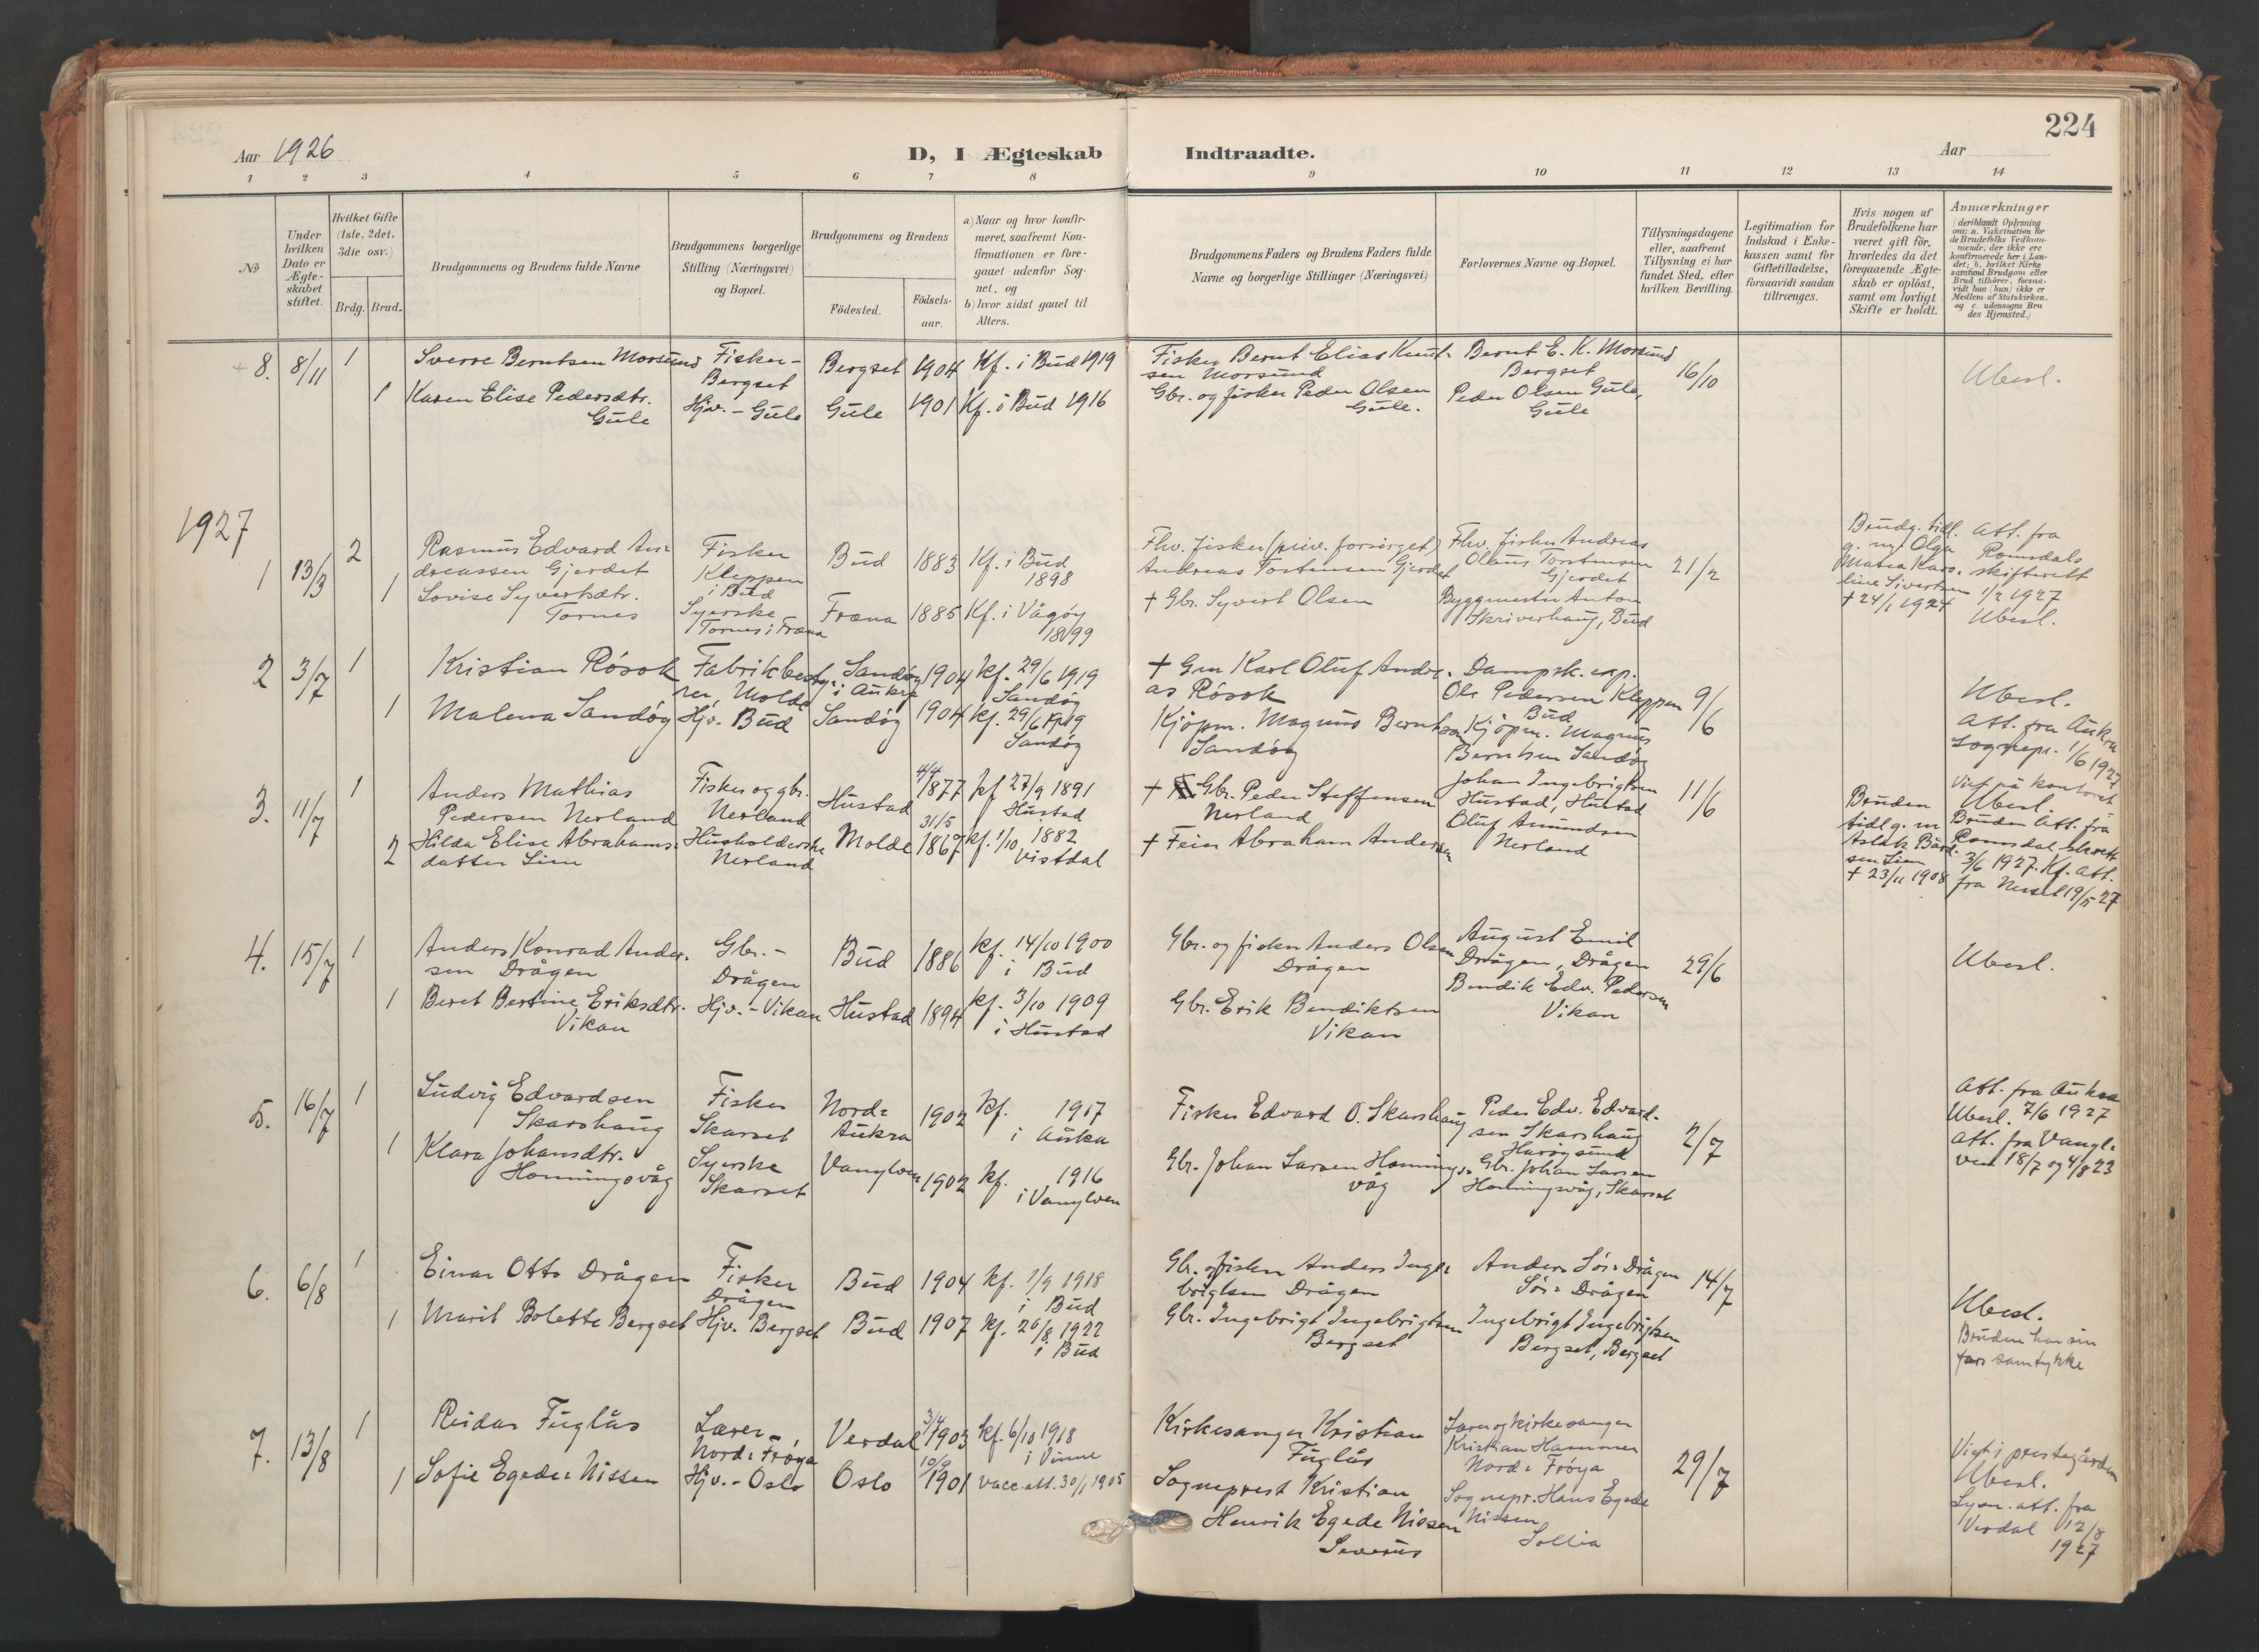 224
Aar 1926
D, I Ægteskab Indtraadte.
Aar
1 2 3 4 5 6 7 8 9 10 11 12 13 14
No
Under hvilken Dato er Ægteskabet stiftet.
Hvilket Gifte (1ste, 2det, 3die osv.)
Brdg. Brud.
Brudgommens og Brudens fulde Navne
Brudgommens borgerlige Stilling (Næringsvei) og Bopæl.
Brudgommens og Brudens
Fødested.
Fødselsaar.
a) Naar og hvor konfirmeret, saafremt Konfirmationen er foregaaet udenfor Sognet, og
b) hvor sidst gaaet til Alters.
Brudgommens Faders og Brudens Faders fulde Navne og borgerlige Stillinger (Næringsvei)
Forlovernes Navne og Bopæl.
Tillysningsdagene eller, saafremt Tillysning ei har fundet Sted, efter hvilken Bevilling.
Legitimation for Indskud i Enkekassen samt for Giftetilladelse, forsaavidt saadan tiltrænges.
Hvis nogen af Brudefolkene har været gift før, hvorledes da det foregaaende Ægteskab er opløst, samt om lovligt Skifte er holdt.
Anmærkninger
(deriblandt Oplysning om: a. Vakcination for de Brudefolks Vedkommende, der ikke ere konfirmerede her i Landet; b. hvilket Kirkesamfund Brudgom eller Brud tilhører, forsaavidt han (hun) ikke er Medlem af Statskirken, og c. udensogns Brudes Hjemsted.)
+ 8. 8/11 1 Sverre Berntsen Morsund Fisker - Bergset Bergset 1904 Kf. i Bud 1919
Fisker Bernt Elias Knutsen Morsund
Bernt E. K. Morsund Bergset
16/10
Ubesl.
1 Karen Elise Pedersdtr. Gule Hjv. - Gule Gule 1901 Kf. i Bud 1916
Gbr. og fisker Peder Olsen Gule.
Peder Olsen Gule, Gule
1927
1 13/3 2 Rasmus Edvard Andreassen Gjerdet Fisker Kleppen i Bud Bud 1883 Kf. i Bud 1898
Fhv. fisker (priv. forsørget) Andreas Torstensen Gjerdet
Fhv. fisker Andreas Olaus Torstensen Gjerdet
21/2
Brudg. tidl. g. m. Olga Matea Karoline Sivertsen + 24/1 1924
Att. fra Romsdals skifterett 1/2 1927
Ubesl.
1 Lovise Syvertsdtr. Tornes Syerske Tornes i Fræna Fræna 1885 Kf. i Vågøy 1899
+ Gbr. Syvert Olsen
Byggmester Anton Skriverhaug, Bud
2 3/7 1 Kristian Røsok Fabrikbestyrer, Molde Sandøy i Aukra 1904 kf. 29/6 1919 Sandøy
+ Gm Karl Oluf Andreas Røsok
Dampsk.exp. Ole Pedersen Kleppen Bud
9/6
Ubesl.
Att. fra Aukra sognepr. 1/6 1927
1 Malena Sandøy Hjv. Bud Sandøy 1904 kf. 29/6 1919 Sandøy
Kjøpm. Magnus Berntsen Sandøy
Kjøpm. Magnus Berntsen Sandøy
3. 11/7 1 Anders Mathias Pedersen Nerland Fisker og gbr. Nerland Hustad 4/4 1877 kf 27/9 1891 Hustad
+ Gbr. Peder Steffensen Nerland
Johan Ingebrigtsen Hustad, Hustad
11/6
Bruden tidl. g. m Aslak Bårdsen Lien + 23/11 1908
Viet på kontoret
Ubesl.
Bruden Att. fra Romsdal skrett 3/6 1927. Kf. att. fra Nesset 19/5 27
2 Hilda Elise Abrahamsdatter Lien Husholderske Nerland Molde 31/5 1867 kf. 1/10 1882 Vistdal
+ Feier Abraham Andersen
Oluf Amundsen Nerland
4. 15/7 1 Anders Konrad Andersen Drågen Gbr. - Drågen Bud 1886 kf. 14/10 1900 i Bud
Gbr. og fisker Anders Olsen Drågen
August Emil Drågen, Drågen
29/6
Ubesl.
1 Beret Bertine Eriksdtr. Vikan Hjv. - Vikan Hustad 1894 kf. 3/10 1909 i Hustad
Gbr. Erik Bendiktsen Vikan
Bendik Edv. Pedersen Vikan
5. 16/7 1 Ludvig Edvardsen Skarshaug Fisker Skarset Nord-Aukra 1902 kf. 1917 i Aukra
Fisker Edvard O. Skarshaug
Peder Edv. Edvardsen Skarshaug Harøysund
2/7
Att. fra Aukra
Ubesl. 7/6 1927
Att. fra Vanylven 18/7 og 4/8 23
1 Klara Johansdtr. Honningsvåg Syerske Skarset Vanylven 1902 kf. 1916 i Vanylven
Gbr. Johan Larsen Honningsvåg
Gbr. Johan Larsen Honningsvåg, Skarset
6. 6/8 1 Einar Otto Drågen Fisker Drågen Bud 1904 kf. 1/9 1918 i Bud
Gbr. og fisker Anders Ingebrigtsen Drågen
Anders Sør-Drågen Sør-Drågen
14/7
Ubesl.
Bruden har sin fars samtykke
1 Marit Bolette Bergset Hjv. Bergset Bud 1907 kf. 26/8 1922 i Bud
Gbr. Ingebrigt Ingebrigtsen Bergset
Ingebrigt Ingebrigtsen Bergset, Bergset
7. 13/8 1 Reidar Fuglås Lærer, Nord-Frøya Verdal 3/4 1903 kf. 6/10 1918 i Vinne
Kirkesanger Kristian Fuglås
Lærer og kirkesanger Kristian Hammer Nord-Frøya
29/7
Viet i prestegården
Ubesl.
Lysn. att. fra Verdal 12/8 1927
1 Sofie Egede-Nissen Hjv. - Oslo Oslo 10/9 1901 Vacc. att. 30/1 1905
Sogneprest Kristian Henrik Egede Nissen Severus
Sognepr. Hans Egede Nissen Sollia